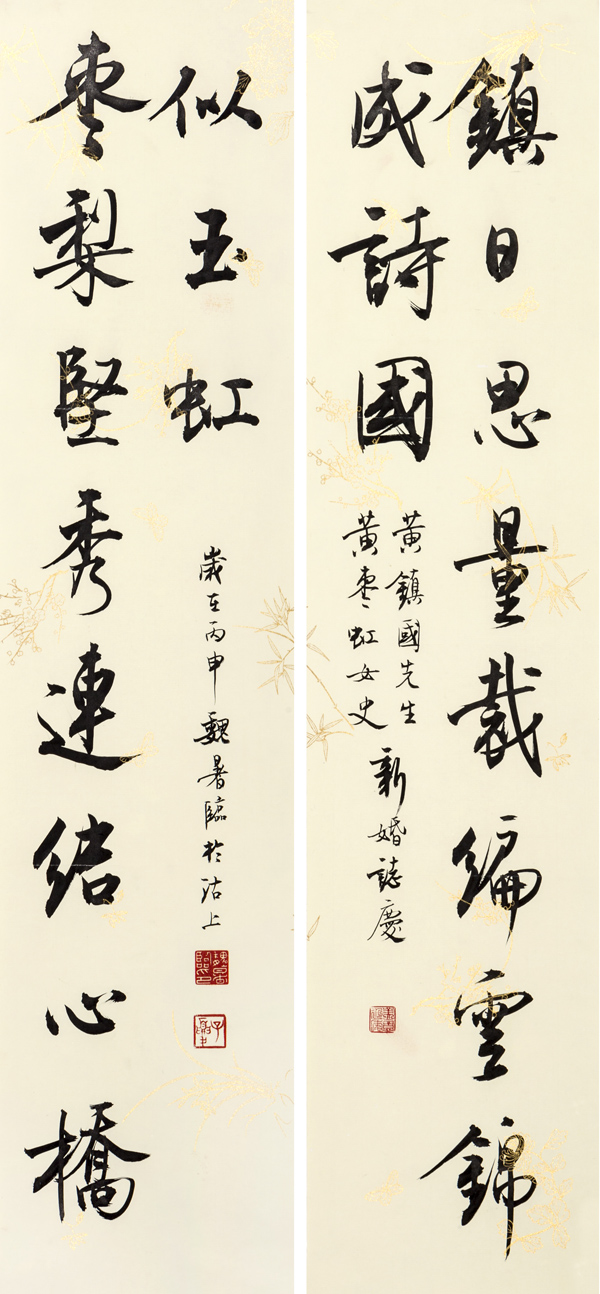 鎮日思量裁編雲錦
成詩國
黃鎮國先生
黃棗虹女史新婚誌慶
棗梨堅秀連結心橋
似玉虹
歲在丙申魏暑臨於沽上
魏暑臨印